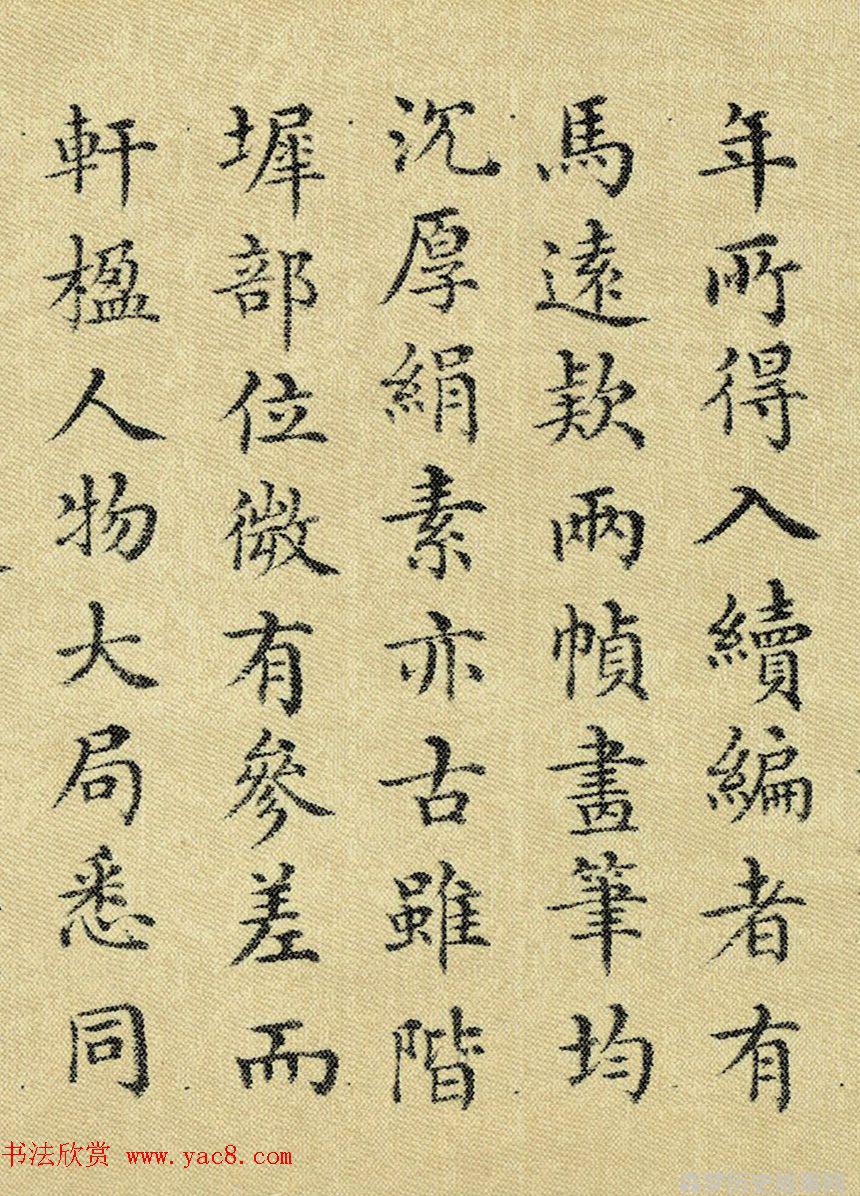 年所得入續編者有
馬遠款兩幀畫筆均
沉厚絹素亦古雖階
墀部位微有參差而
軒楹人物大局悉同
书法欣赏 www.yac8.com